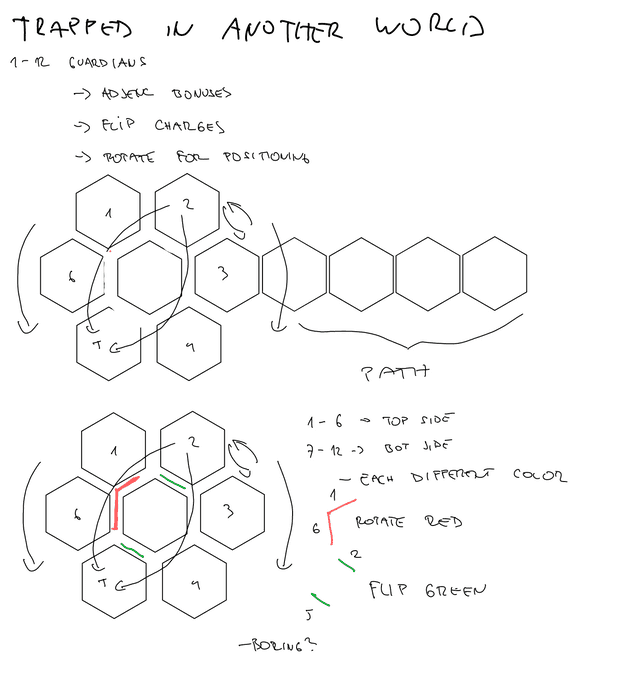 TRAPPED IN ANOTHER WORLD
1-12 GUARDIANS
-> ADJENC BONUSES
-> FLIP CHARGES
-> ROTATE FOR POSITIONING
1 2
6 3
5 4
PATH
1 2
6 3
5 4
1-6 -> TOP SIDE
7-12 -> BOT SIDE
- EACH DIFFERENT COLOR
1
6 ROTATE RED
2
FLIP GREEN
5
- BORING?